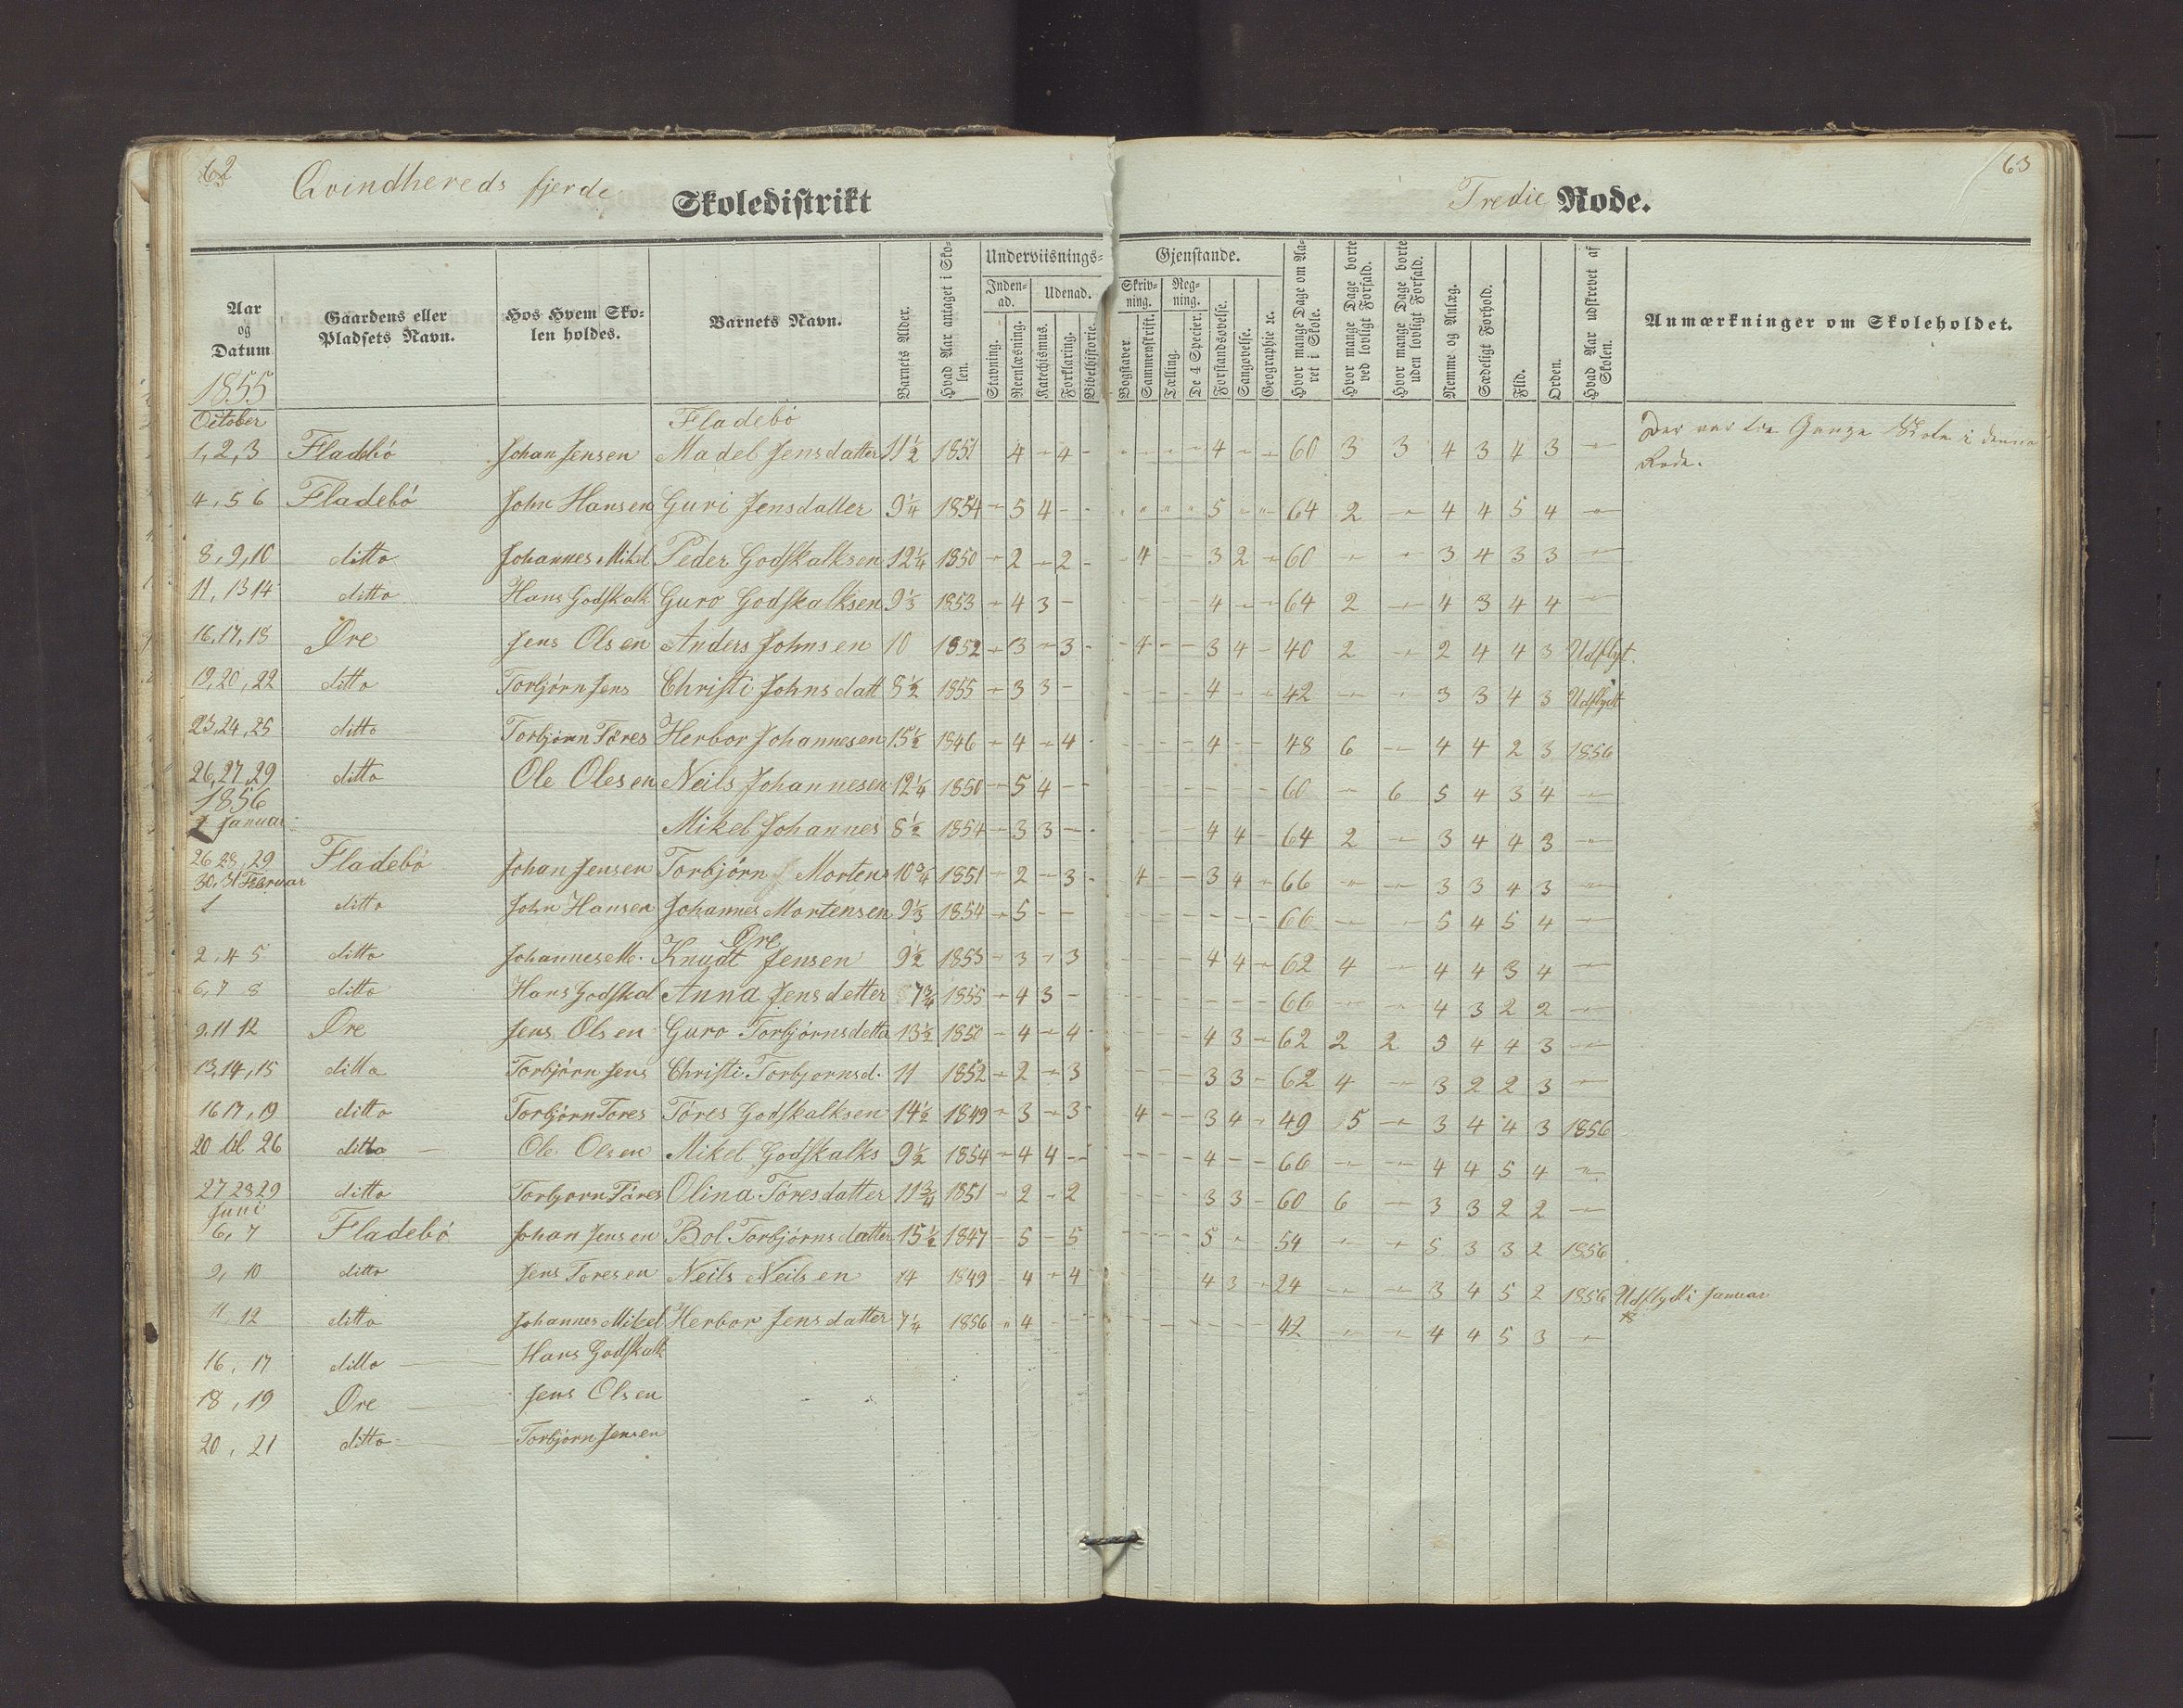 62
Qvindhereds fjerde Skoledistrikt
Tredie Rode.
63
Aar og Datum
Gaardens eller Pladsets Navn.
Hos Hvem Skolen holdes.
Barnets Navn.
Barnets Alder.
Hvad Aar antaget i Skolen.
Underviisnings-
Gjenstande.
Indenad.
Udenad.
Skrivning.
Regning.
Stavning.
Reenlæsning.
Katechismus.
Forklaring.
Bibelhistorie.
Bogstaver
Sammenskrift.
Tælling.
De 4 Species.
Forstandsøvelse.
Sangøvelse.
Geographie ic.
Hvor mange Dage om Aaret i Skole.
Hvor mange Dage borte ved lovligt Forfald.
Hvor mange Dage borte uden lovligt Forfald.
Nemme og Anlæg.
Sædeligt Forhold.
Flid.
Orden.
Hvad Aar udskrevet af Skolen.
Anmærkninger om Skoleholdet.
1855
October
Fladebö
1, 2, 3 Fladebö Johan Jensen Madel Jensdatter 11½ 1851 4 - 4 - - - - - 4 - - 60 3 3 4 3 4 3 -
Der var tre Gange Skole i denne
Rode.
4, 5 6 Fladebö John Hansen Guri Jensdatter 9¼ 1854 - 5 4 - - - - - - 5 - - 64 2 - 4 4 5 4 -
8, 9, 10 ditto Johannes Mikel Peder Godskalksen 12¼ 1850 - 2 - 2 - - 4 - - 3 2 - 60 - - 3 4 3 3 -
11, 13 14 ditto Hans Godskalk Guro Godskalksen 9⅓ 1853 - 4 3 - - - - - 4 - - 64 2 - 4 3 4 4 -
16, 17, 18 Øre Jens Olsen Anders Johnsen 10 1852 - 3 - 3 - - 4 - - 3 4 - 40 2 - 2 4 4 3 Udflyt.
19, 20, 22 ditto Torbjörn Jens Christi Johnsdatt 8½ 1855 - 3 3 - - - - - 4 - - 42 - - 3 3 4 3 Udflydt
23, 24, 25 ditto Torbjörn Töres Herbor Johannesen 15½ 1846 - 4 - 4 - - - - - 4 - - 48 6 - 4 4 2 3 1856
26, 27, 29 ditto Ole Olesen Neils Johannesen 12¼ 1850 - 5 4 - - - - - - - - - 60 - 6 5 4 3 4 -
1856
Januar
Mikel Johannes 8½ 1854 - 3 3 - - - - 4 4 - 64 2 - 3 4 4 3 -
26 28, 29
30, 31 Februar
Fladebö Johan Jensen Torbjörn Mortens 10¾ 1851 - 2 - 3 - 4 - - 3 4 - 66 - - 3 3 4 3 -
1 ditto John Hansen Johannes Mortensen 9⅓ 1854 - 5 - - - - - - - - - 66 - - 5 4 5 4 -
Øre
2, 4 5 ditto Johannes M. Knudt Jensen 9½ 1853 - 3 - 3 - - - - 4 4 - 62 4 - 4 4 3 4 -
6, 7 8 ditto Hans Godskal Anna Jensdetter 7¾ 1855 - 4 3 - - - - - - - - 66 - - 4 3 2 2 -
9, 11 12 Øre Jens Olsen Guro Torbjörnsdetter 13½ 1850 - 4 - 4 - - - - - 4 3 - 62 2 2 5 4 4 3 -
13, 14, 15 ditto Torbjörn Jens Christi Torbjornsd. 11 1852 - 2 - 3 - - - - 3 3 - 62 4 - 3 2 2 3 -
16 17, 19 ditto Torbjörn Tores Töres Godskalksen 14½ 1849 - 3 - 3 - - 4 - - 3 4 - 49 5 - 3 4 4 3 1856
20 til 26 ditto Ole Olsen Mikel Godskalks 9½ 1854 - 4 4 - - - - - - 4 - - 66 - - 4 4 5 4 -
27 28 29 ditto Torbjorn Töres Olina Töresdatter 11¾ 1851 - 2 - 2 - - - - 3 3 - 60 6 - 3 3 2 2 -
Juni
6, 7 Fladebö Johan Jensen Bol Torbjörnsdatter 15½ 1847 - 5 - 5 - - - - 5 - 54 - - 5 3 3 2 1856
9, 10 ditto Jens Toresen Neils Neilsen 14 1849 - 4 - 4 - - 4 3 - 24 - - 3 4 5 2 1856 Udflydt i Januar
11, 12 ditto Johannes Mikel Herbor Jensdatter 7¼ 1856 " 4 - - - - - - - - - - 42 - - 4 4 5 3 -
16, 17 ditto Hans Godskalk
18, 19 Øre Jens Olsen
20, 21 ditto Torbjörn Jensen